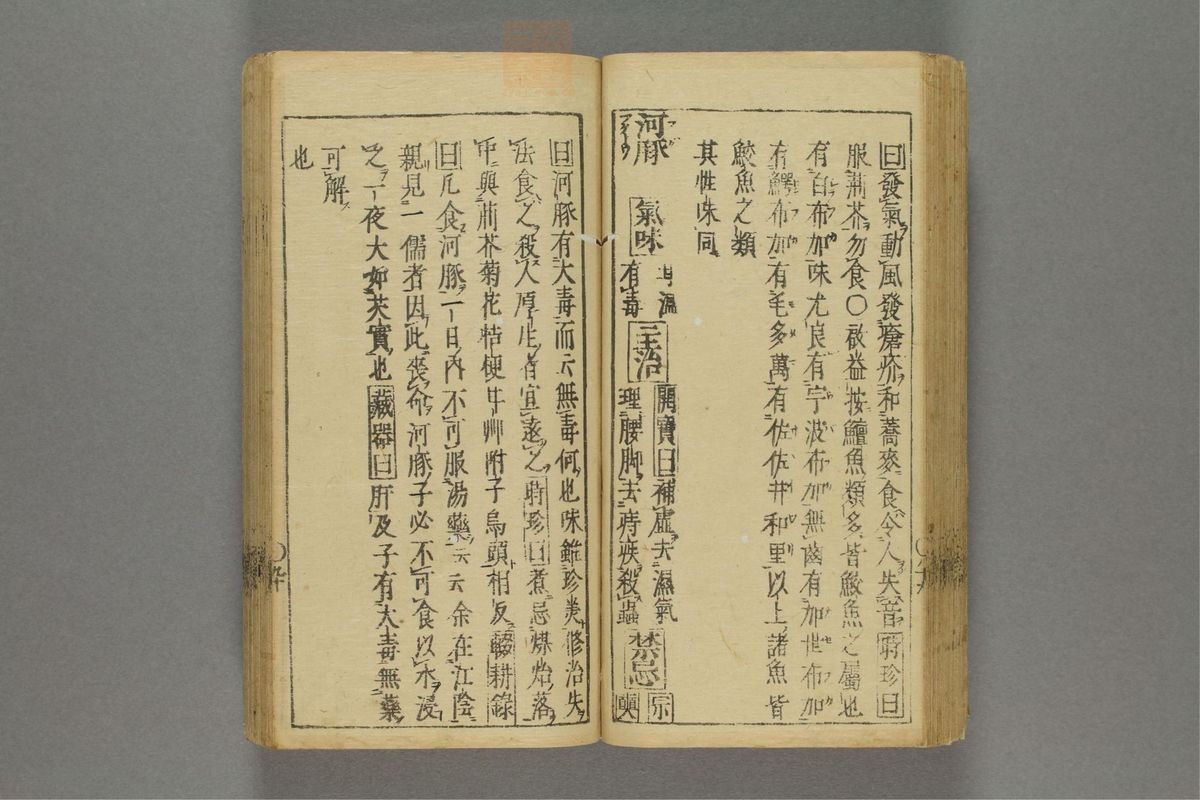 曰發氣動風發瘡疥和蕎麥食令人失音時珍曰
服荊芥勿食○啟益按鱣魚類多皆鮫魚之屬也
有白布加味尤良有宇波布加無齒有加世布加
有鰐布加有毛多萬有佐佐井和里以上諸魚皆
鮫魚之類
其性味同
河豚
氣味 甘溫有毒 主治 開寶曰補虛去濕氣理腰脚去痔疾殺蟲 禁忌 宗奭
曰河豚有大毒而云無毒何也味雖珍美修治失
法食之殺人厚生者宜遠之時珍曰煮忌煤炲落
中與荊芥菊花桔梗甘艸附子烏頭相反輟耕錄
曰凡食河豚一日內不可服湯藥云云余在江陰
親見一儒者因此喪命河豚子必不可食以水浸
之一夜大如芡實也藏器曰肝及子有大毒無藥
可解
也